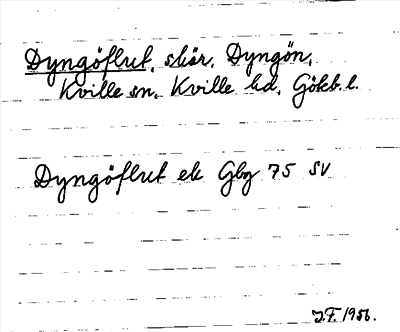 Dyngöflut, skär, Dyngön,
Kville sn, Kville hd, Götb. l.
Dyngöflut ek Gbg 75 SV
J.F. 1956.